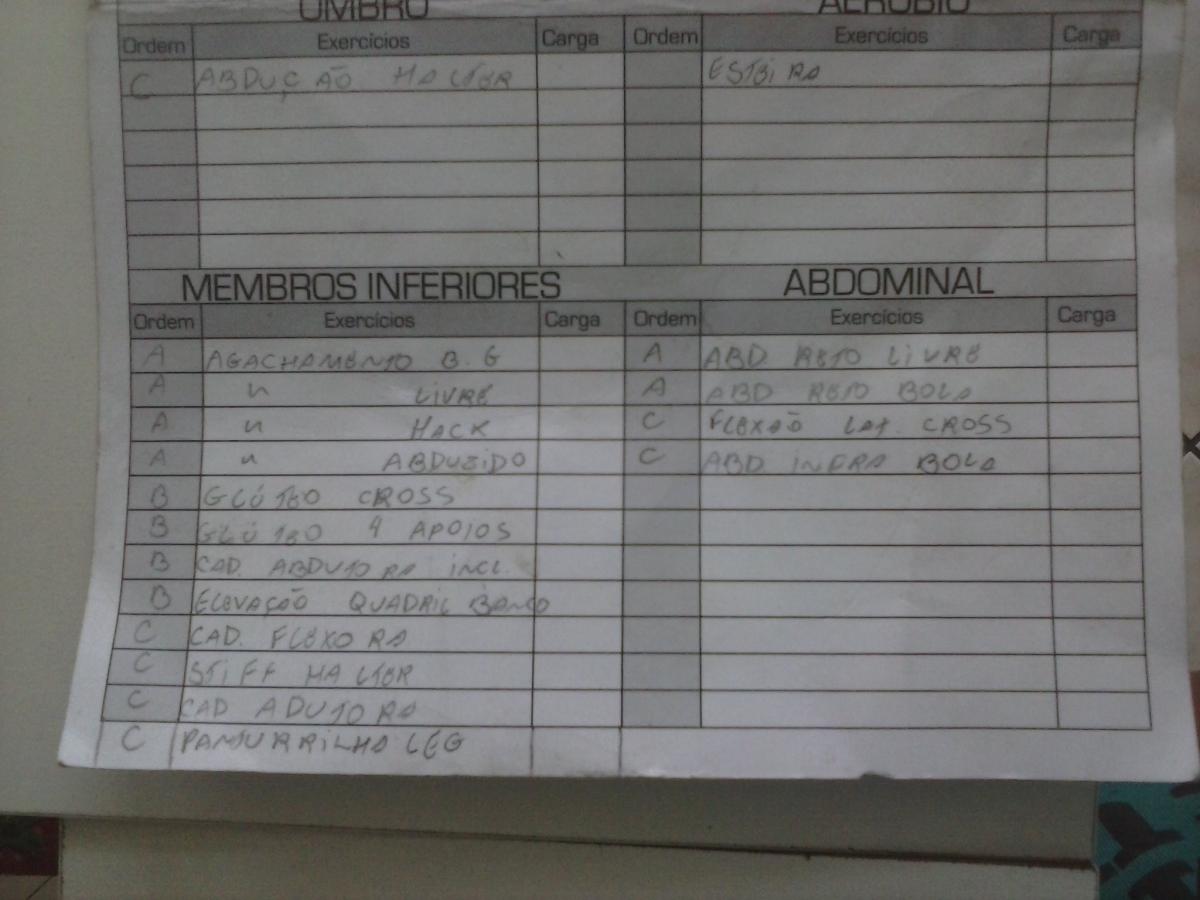 OMBRO
Ordem Exercícios Carga
C ABDUÇÃO HALTER
AERÓBIO
Ordem Exercícios Carga
ESTEIRA
MEMBROS INFERIORES
Ordem Exercícios Carga
A AGACHAMENTO B.G
A " LIVRE
A " HACK
A " ABDUZIDO
B GLÚTEO CROSS
B GLÚTEO 4 APOIOS
B CAD. ABDUTORA INCL.
B ELEVAÇÃO QUADRIL BANCO
C CAD. FLEXORA
C STIFF HALTER
C CAD ADUTORA
C PANTURRILHA LEG
ABDOMINAL
Ordem Exercícios Carga
A ABD RETO LIVRE
A ABD RETO BOLA
C FLEXÃO LAT. CROSS
C ABD INFRA BOLA